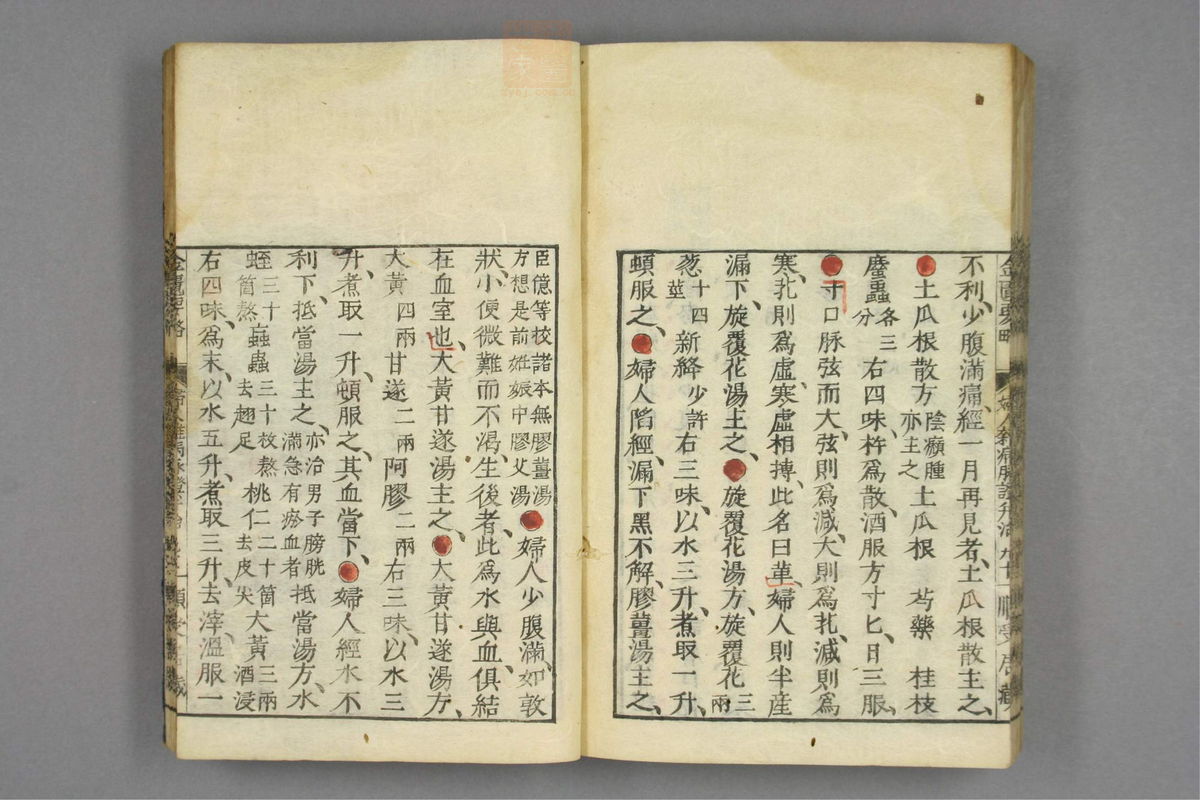 不利、少腹滿痛、經一月再見者、土瓜根散主之、
土瓜根散方 陰㿗腫亦主之 土瓜根 芍藥 桂枝
䗪蟲各三分 右四味、杵爲散、酒服方寸匕、日三服、
寸口脉弦而大、弦則爲減、大則爲芤、減則爲
寒、芤則爲虛、寒虛相搏、此名曰革、婦人則半產
漏下、旋覆花湯主之、旋覆花湯方、旋覆花三兩
葱十四莖 新絳少許 右三味、以水三升、煮取一升、
頓服之、婦人陷經、漏下黑不解、膠薑湯主之、
臣億等校諸本無膠薑湯方想是前妊娠中膠艾湯 婦人少腹滿、如敦
狀、小便微難而不渴、生後者、此爲水與血、俱結
在血室也、大黃甘遂湯主之、大黃甘遂湯方、
大黃四兩 甘遂二兩 阿膠二兩 右三味、以水三
升、煮取一升、頓服之、其血當下、婦人經水不
利下、抵當湯主之、亦治男子膀胱滿急有瘀血者 抵當湯方、水
蛭三十箇熬 蝱蟲三十枚熬去翅足 桃仁二十箇去皮尖 大黃三兩酒浸
右四味、爲末、以水五升、煮取三升、去滓、溫服一